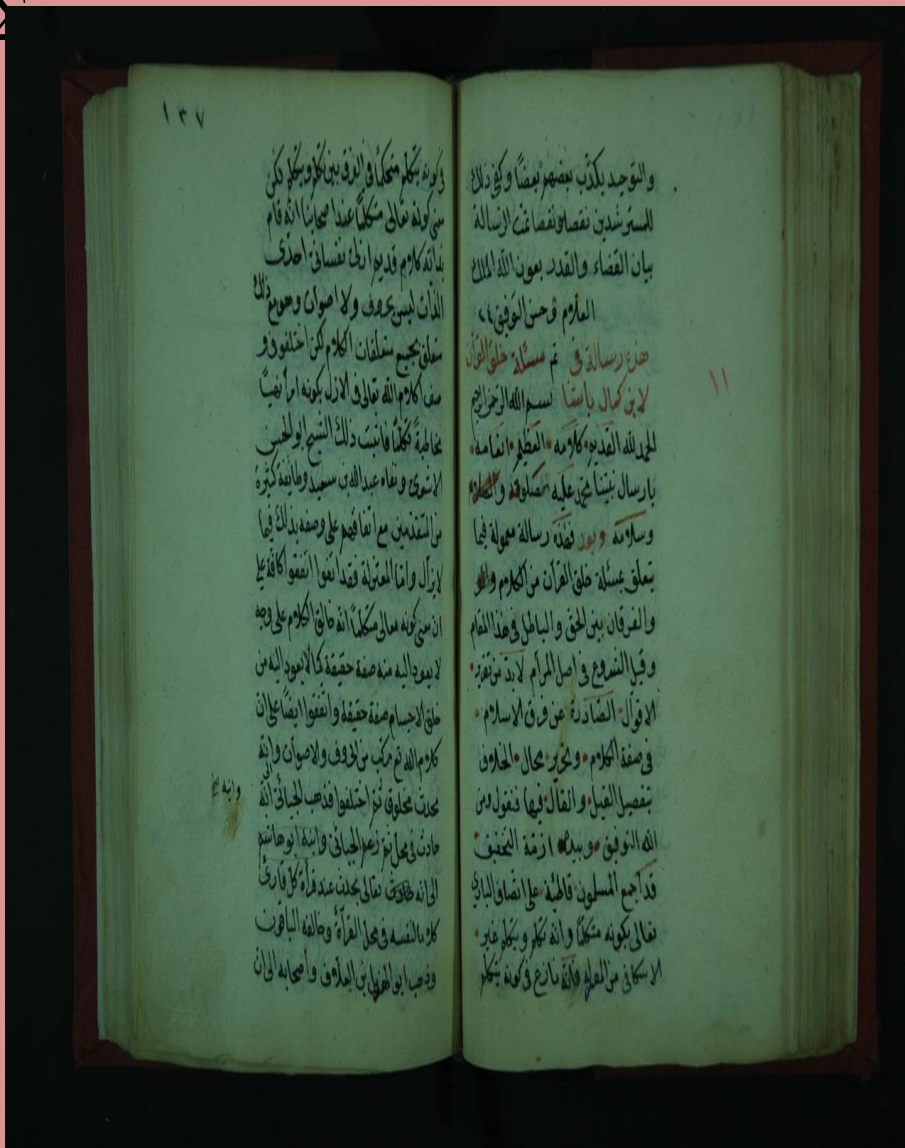 والتوحيد يكذب بعضهم بعضا وكفى ذلك
للمسترشدين نقصا ونقصا تمت الرسالة
بيان القضاء والقدر بعون الله الملك
العلام وحسن التوفيق
هذه رسالة في تم مسئلة خلق القرآن
لابن كمال پاشا بسم الله الرحمن الرحيم
١١
الحمد لله القديم كلامه العظيم انعامه
بارسال نبينا محمد عليه صلوته
وسلامه وبعد فهذه رسالة معمولة فيما
يتعلق بمسئلة خلق القرآن من الكلام
والفرقان بين الحق والباطل في هذا المقام
وقبل الشروع في اصل المرام لا بد من تقرير
الاقوال الصادرة عن فرق الاسلام
في صفة الكلام وتحرير محال الخلاف
بتفصيل القيل والقال فيها فنقول ومن
الله التوفيق وبيده ازمة التحقيق
قد اجمع المسلمون قاطبة على اتصاف الباري
تعالى بكونه متكلما وانه تكلم ويتكلم غير
الاسكافي من المعتزلة فانه نازع في كونه يتكلم
١٣٧
وكونه يتكلم متحكما في الفرق بين تكلم ويتكلم لكن
معنى كونه تعالى متكلما عند اصحابنا انه قام
بذاته كلام قديم ازلي نفساني احدى
الذات ليس بحروف ولا اصوات وهو مع ذلك
متعلق بجميع متعلقات الكلام لكن اختلفوا في و
صف كلام الله تعالى في الازل بكونه امرا نهيا
مخاطبة تكلما فاثبت ذلك الشيخ ابو الحسن
الاشعرى ونفاه عبد الله بن سعيد وطائفة كثيرة
من المتقدمين مع اتفاقهم على وصفه بذلك فيما
لا يزال واما المعتزلة فقد اتفقوا كافة على
ان معنى كونه تعالى متكلما انه خالق الكلام على وجه
لا يعود اليه منه صفة حقيقة كما لا يعود اليه من
خلق الاجسام صفة حقيقة واتفقوا ايضا على ان
كلام الله تع مركب من الحروف والاصوات وانه
محدث مخلوق ثم اختلفوا فذهب الجبائي الى انه
وابنه
حادث في محل ثم زعم الجبائي وابنه ابو هاشم
الى انه تعالى يحدث عند قرأة كل قارئ
كلاما لنفسه في محل القرأة وخالفه الباقون
وذهب ابو الهذيل بن العلاف واصحابه الى ان